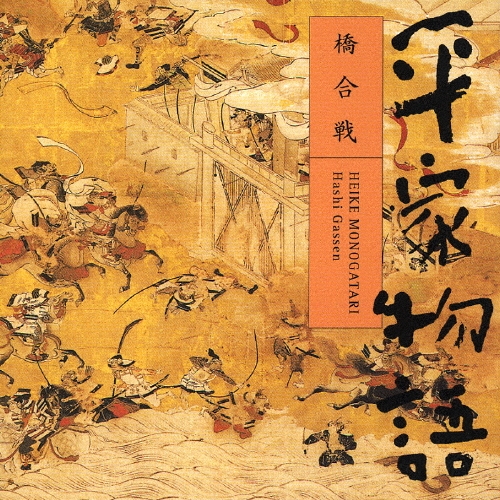 平家物語
橋合戦
HEIKE MONOGATARI
Hashi Gassen